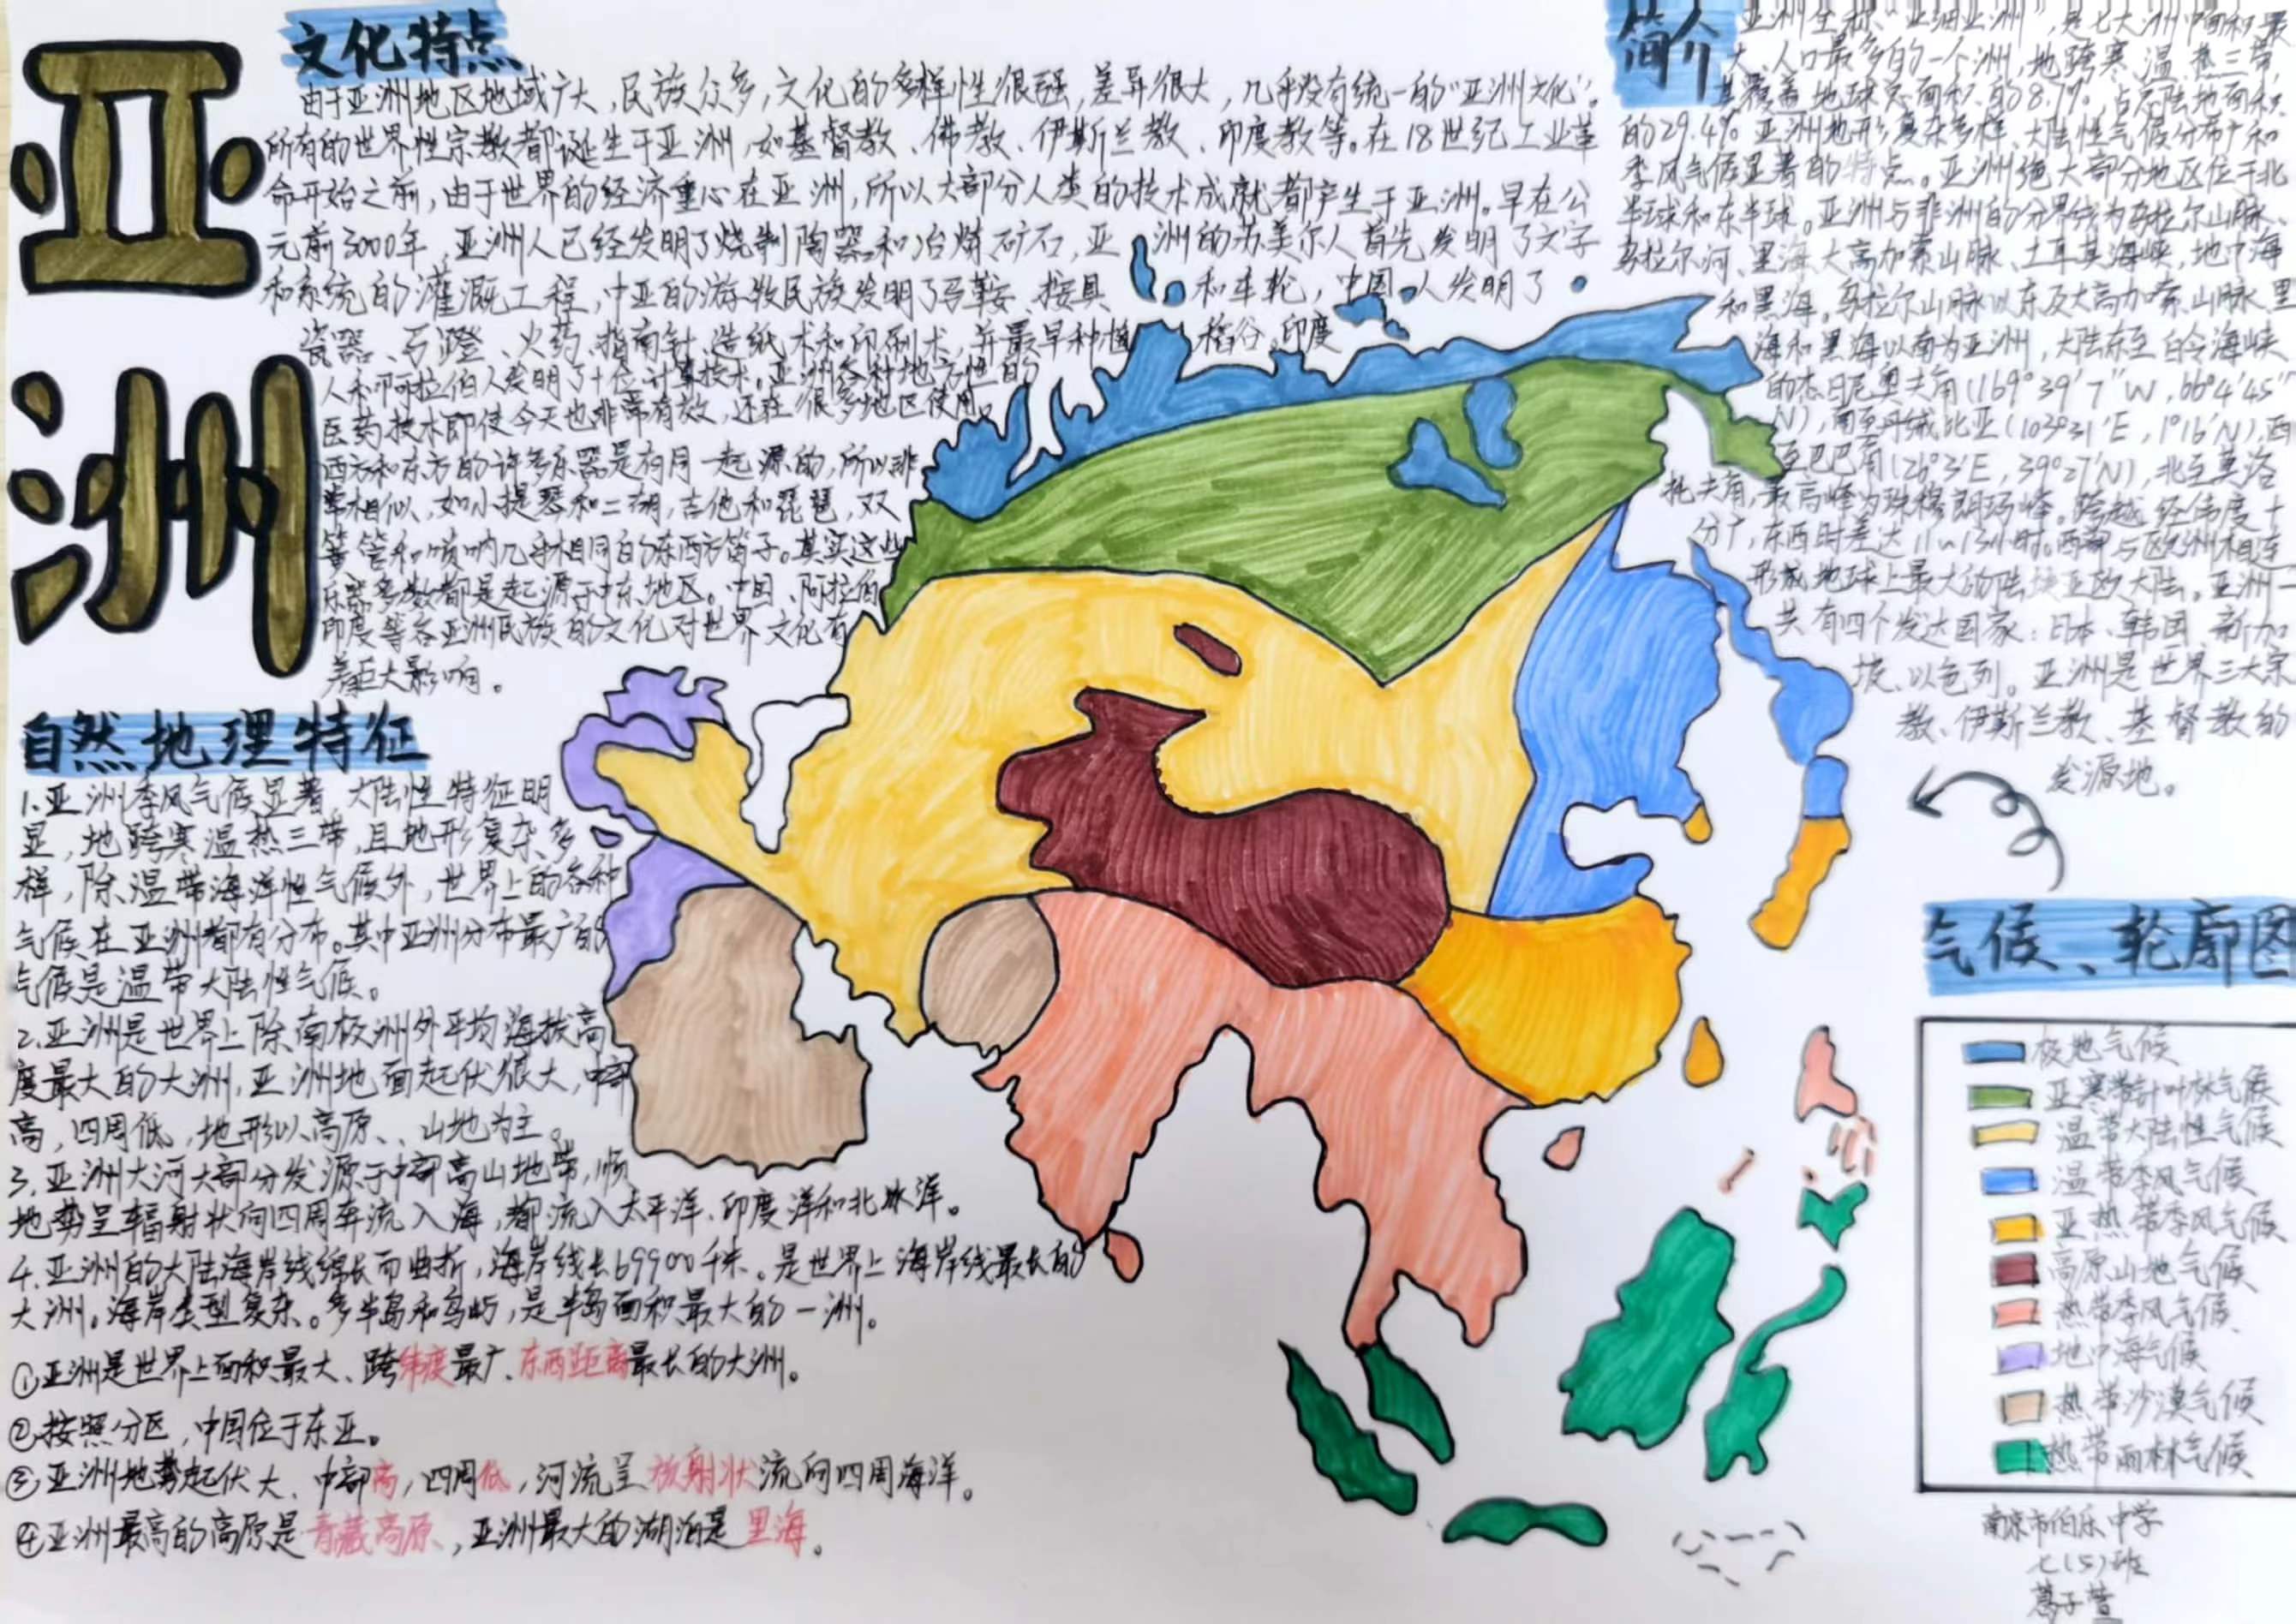 亚洲
文化特点
由于亚洲地区地域广大,民族众多,文化的多样性很强,差异很大,几乎没有统一的“亚洲文化”。
所有的世界性宗教都诞生于亚洲,如基督教、佛教、伊斯兰教、印度教等。在18世纪工业革
命开始之前,由于世界的经济重心在亚洲,所以大部分人类的技术成就都产生于亚洲。早在公
元前3000年,亚洲人已经发明了烧制陶器和冶炼矿石,亚洲的苏美尔人首先发明了文字
和系统的灌溉工程,中亚的游牧民族发明了马鞍、挽具和车轮,中国人发明了
瓷器、马蹬、火药、指南针、造纸术和印刷术,并最早种植稻谷。印度
人和阿拉伯人发明了十位计算技术。亚洲各种地方性的
医药技术即使今天也非常有效,还在很多地区使用。
西方和东方的许多乐器是有同一起源的,所以非
常相似,如小提琴和二胡,吉他和琵琶,双
簧管和唢呐几乎相同的东西方笛子。其实这些
乐器多数都是起源于中东地区。中国、阿拉伯
印度等各亚洲民族的文化对世界文化有
着巨大影响。
自然地理特征
1.亚洲季风气候显著,大陆性特征明
显,地跨寒温热三带,且地形复杂多
样,除温带海洋性气候外,世界上的各种
气候在亚洲都有分布。其中亚洲分布最广的
气候是温带大陆性气候。
2.亚洲是世界上除南极洲外平均海拔高
度最大的大洲,亚洲地面起伏很大,中部
高,四周低,地形以高原、山地为主。
3.亚洲大河大部分发源于中部高山地带,顺
地势呈辐射状向四周奔流入海,都流入太平洋、印度洋和北冰洋。
4.亚洲的大陆海岸线绵长而曲折,海岸线长69900千米。是世界上海岸线最长的
大洲。海岸类型复杂。多半岛和岛屿,是半岛面积最大的一洲。
①亚洲是世界上面积最大、跨纬度最广、东西距离最长的大洲。
②按照分区,中国位于东亚。
③亚洲地势起伏大、中部高,四周低,河流呈放射状流向四周海洋。
④亚洲最高的高原是青藏高原、,亚洲最大的湖泊是里海。
简介
亚洲全称“亚细亚洲”,是七大洲中面积最
大、人口最多的一个洲,地跨寒、温、热三带,
其覆盖地球总面积的8.7%,占总陆地面积
的29.4%。亚洲地形复杂多样、大陆性气候分布广和
季风气候显著的特点。亚洲绝大部分地区位于北
半球和东半球。亚洲与非洲的分界线为乌拉尔山脉、
乌拉尔河、里海、大高加索山脉、土耳其海峡,地中海
和黑海。乌拉尔山脉以东及大高加索山脉、里
海和黑海以南为亚洲,大陆东至白令海峡
的杰日尼奥夫角(169°39′7″W,66°4′45″
N),南至丹绒比亚(103°31′E,1°16′N),西
至巴巴角(26°3′E,39°27′N),北至莫洛
托夫角,最高峰为珠穆朗玛峰。跨越经纬度十
分广,东西时差达11~13小时。西部与欧洲相连
形成地球上最大的陆块亚欧大陆。亚洲一
共有四个发达国家:日本、韩国、新加
坡、以色列。亚洲是世界三大宗
教、伊斯兰教、基督教的
发源地。
气候、轮廓图
极地气候
亚寒带针叶林气候
温带大陆性气候
温带季风气候
亚热带季风气候
高原山地气候
热带季风气候
地中海气候
热带沙漠气候
热带雨林气候
南京市伯乐中学
七(5)班